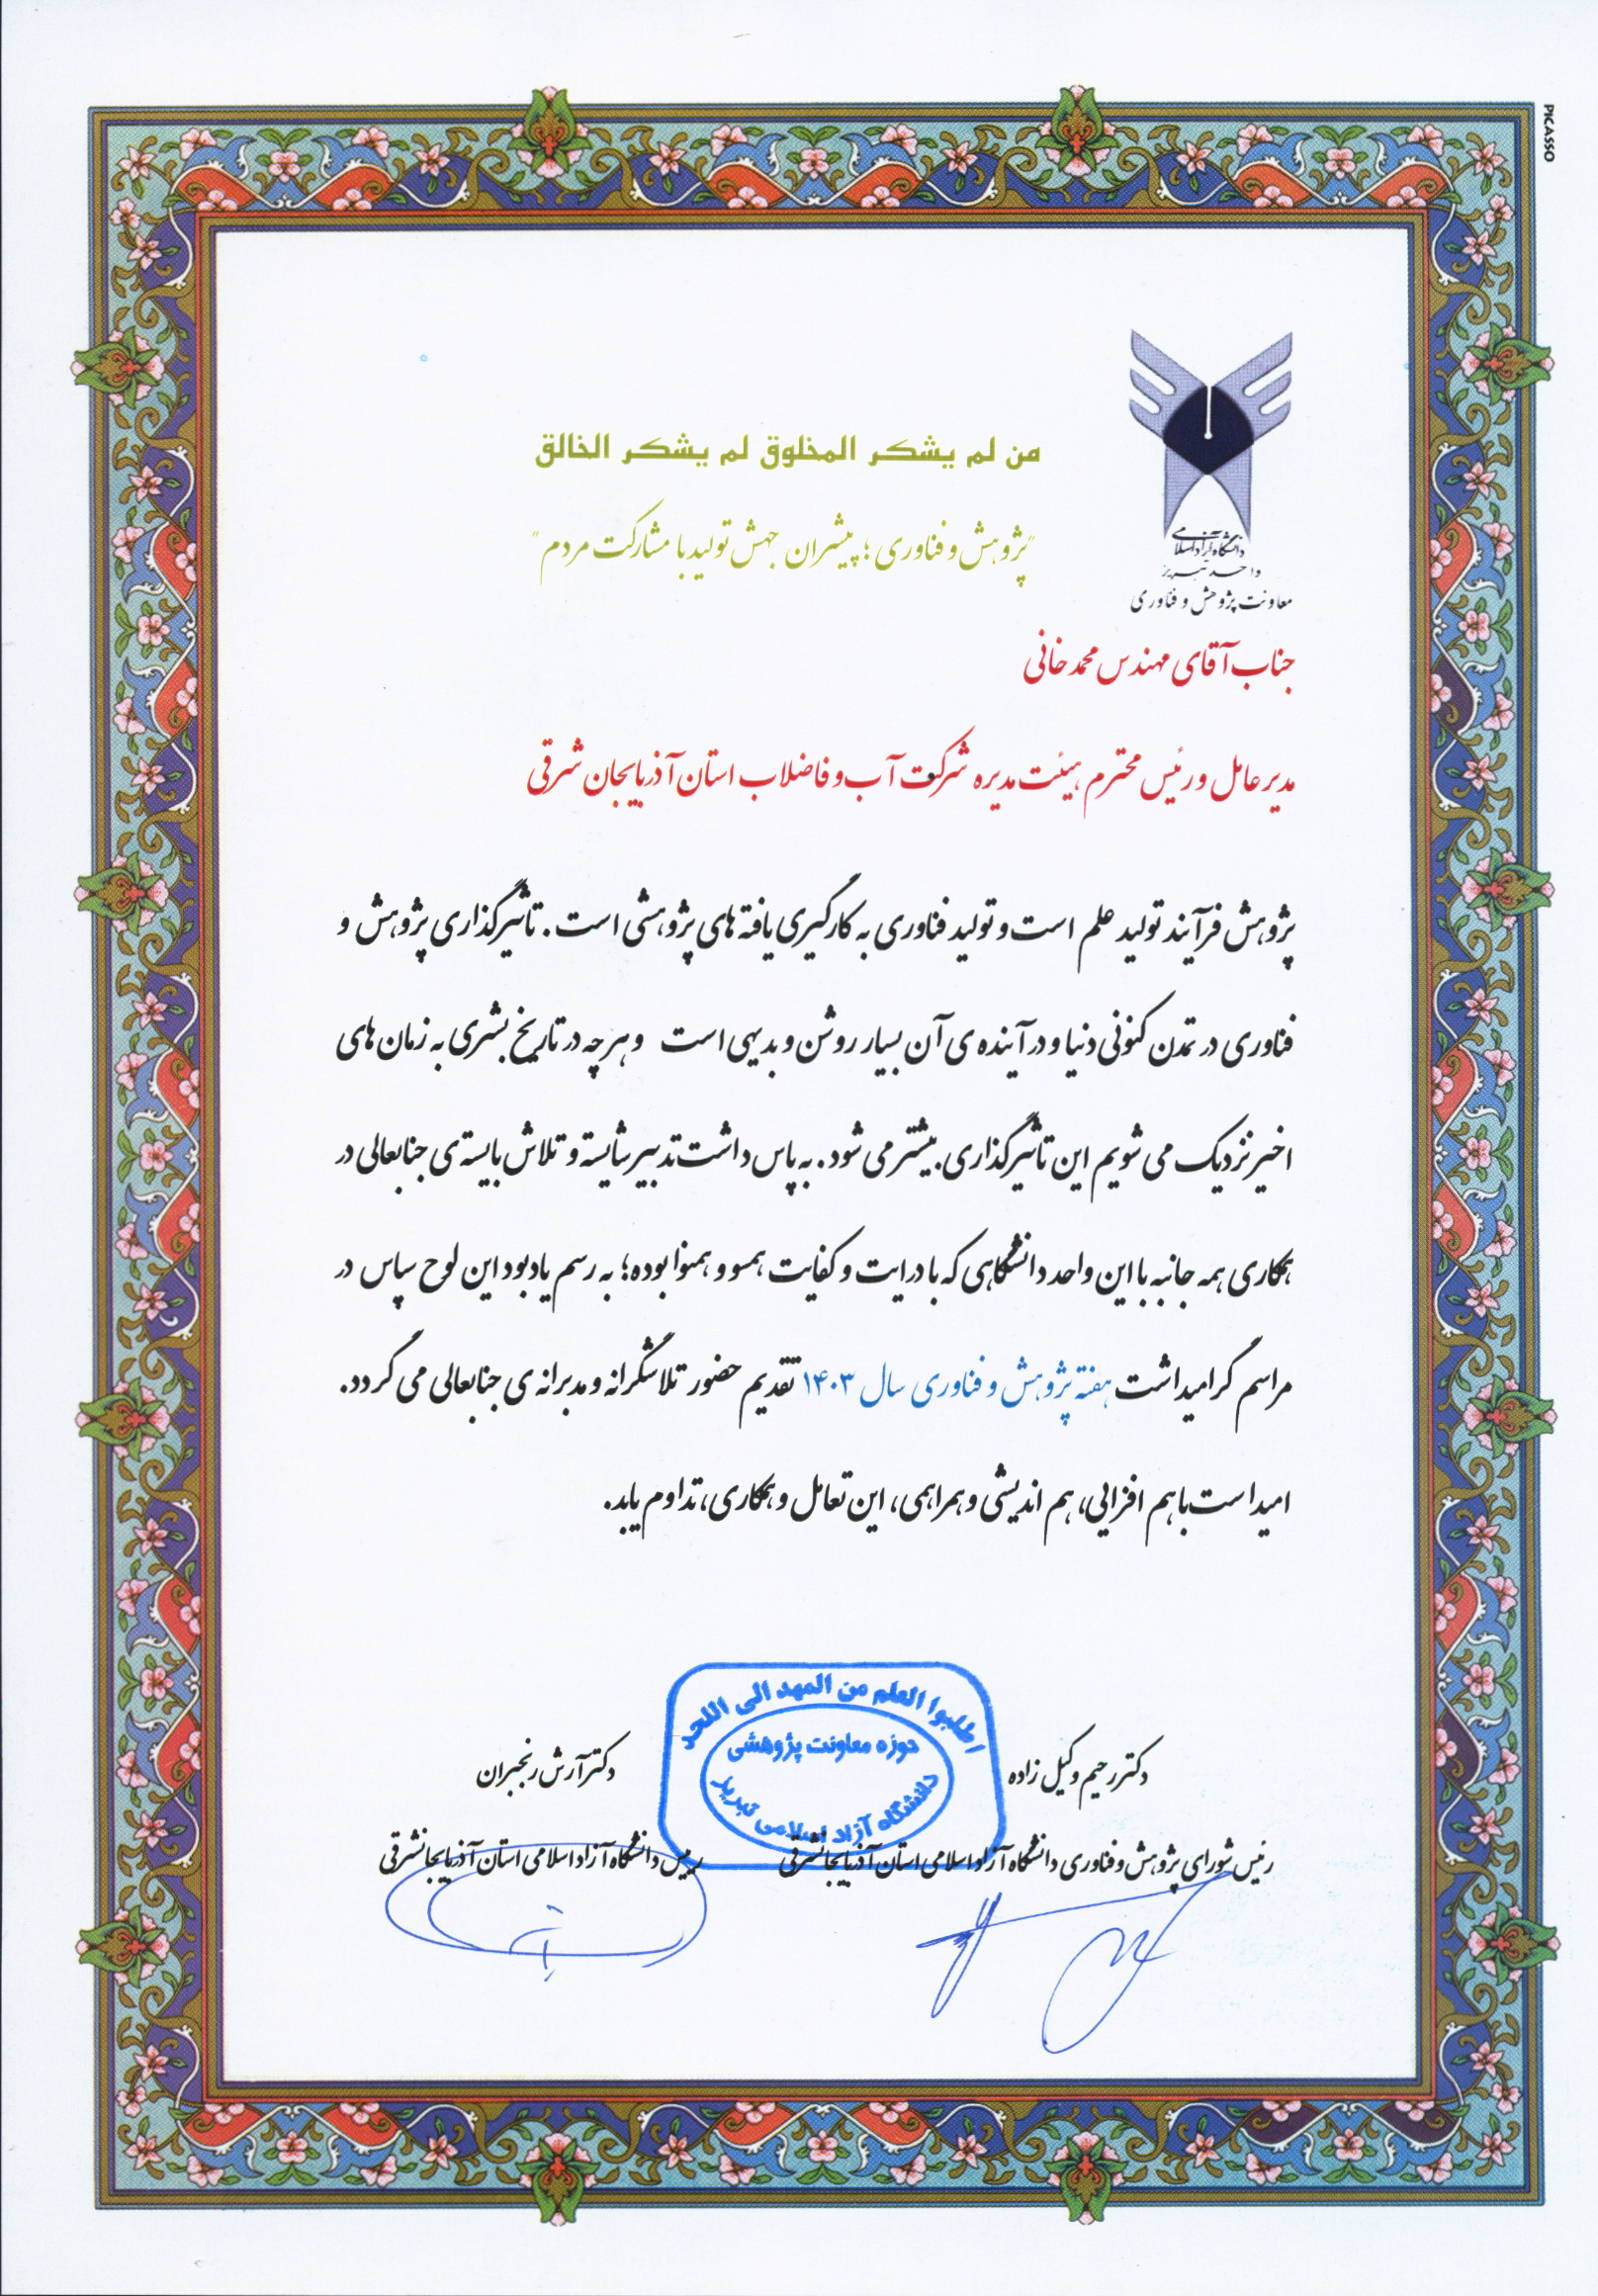 PICASSO
من لم یشکر المخلوق لم یشکر الخالق
"پژوهش و فناوری؛ پیشران جهش تولید با مشارکت مردم"
دانشگاه آزاد اسلامی
واحد تبریز
معاونت پژوهش و فناوری
جناب آقای مهندس محمدخانی
مدیرعامل و رئیس محترم هیئت مدیره شرکت آب و فاضلاب استان آذربایجان شرقی
پژوهش فرآیند تولید علم است و تولید فناوری به کارگیری یافته های پژوهشی است. تاثیرگذاری پژوهش و
فناوری در تمدن کنونی دنیا و در آینده ی آن بسیار روشن و بدیهی است و هر چه در تاریخ بشری به زمان های
اخیر نزدیک می شویم این تاثیرگذاری بیشتر می شود. به پاس داشت تدبیر شایسته و تلاش بایسته ی جنابعالی در
همکاری همه جانبه با این واحد دانشگاهی که با درایت و کفایت همسو و همنوا بوده؛ به رسم یادبود این لوح سپاس در
مراسم گرامیداشت هفته پژوهش و فناوری سال ۱۴۰۳ تقدیم حضور تلاشگرانه و مدبرانه ی جنابعالی می گردد.
امید است با هم افزایی، هم اندیشی و همراهی، این تعامل و همکاری، تداوم یابد.
اطلبوا العلم من المهد الی اللحد
حوزه معاونت پژوهشی
دانشگاه آزاد اسلامی تبریز
دکتر رحیم وکیل زاده
رئیس شورای پژوهش و فناوری دانشگاه آزاد اسلامی استان آذربایجانشرقی
دکتر آرش رنجبران
رییس دانشگاه آزاد اسلامی استان آذربایجانشرقی